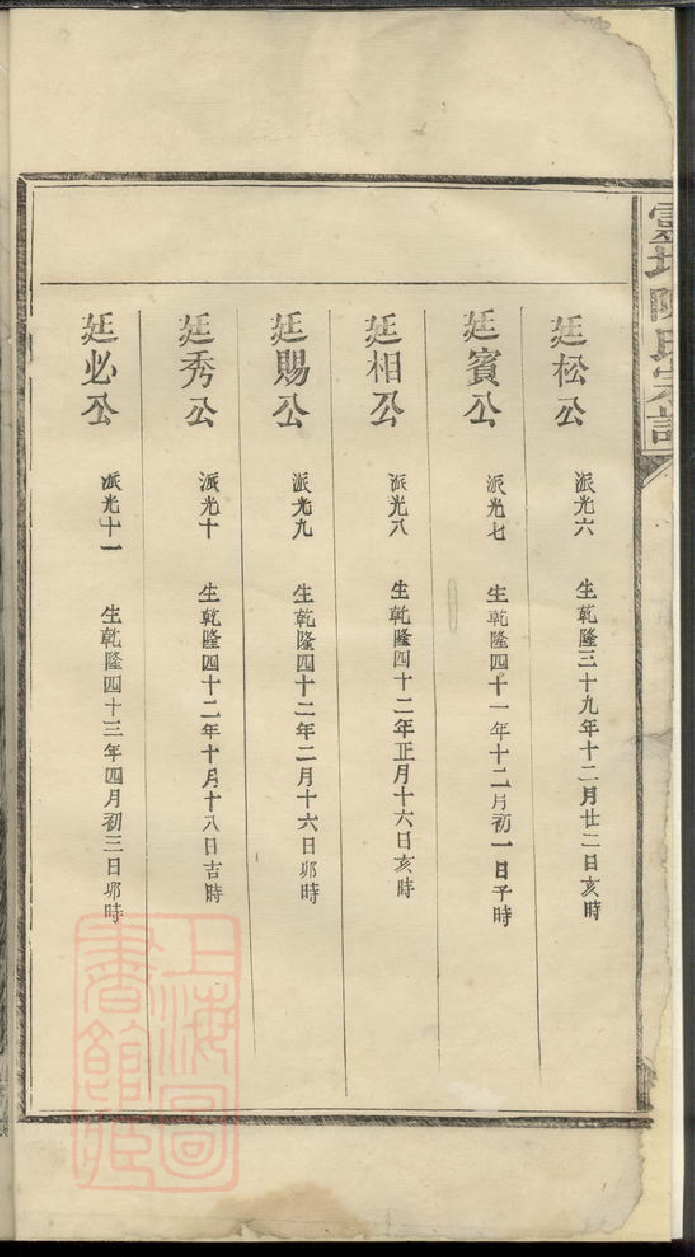 廷松公 派光六 生乾隆三十九年十二月廿二日亥時
廷賓公 派光七 生乾隆四十一年十二月初一日子時
廷相公 派光八 生乾隆四十二年正月十六日亥時
廷賜公 派光九 生乾隆四十二年二月十六日卯時
廷秀公 派光十 生乾隆四十二年十月十八日吉時
廷必公 派光十一 生乾隆四十三年四月初三日卯時
上海圖
書館藏